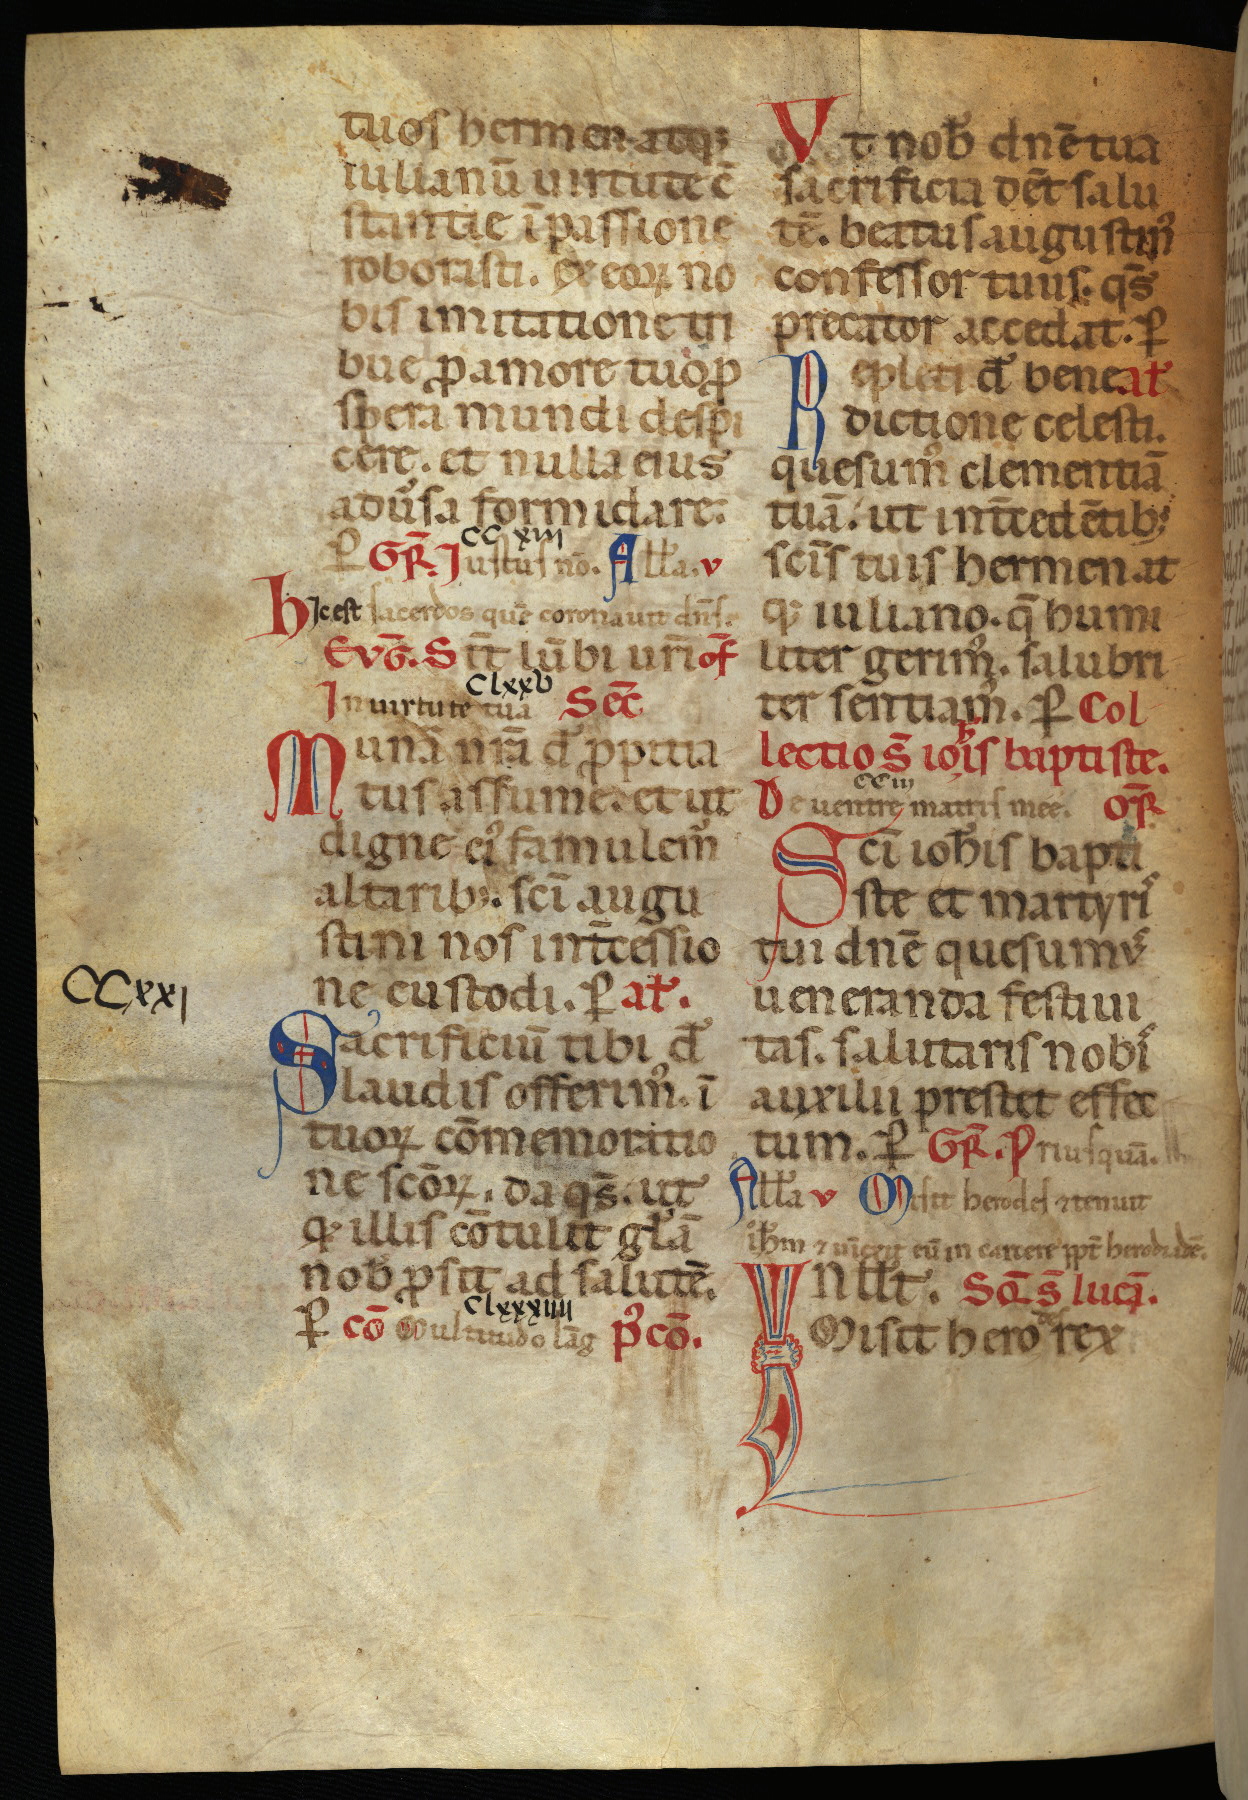 tuos hermen atq;
iulianū uirtute c̄
stantie ī passione
roborasti. ex eoꝝ no
bis imitatione tri
bue ꝓ amore tuo ꝓ
spera mundi despi
cere. et nulla eius
aduͥsa formidare.
CCxiii
ꝑ GR̄. Iustus nō. All̄a. v
Hic est sacerdos quē coronauit dn̄s.
EVG̅. Sīt lūbi urī of̄
Clxxv
In uirtute tua Sec̄
Munā nrā d̄ ꝓpitia
tus assume. et ut
digne eiꝰ famulemꝰ
altarib;. scī augu
stini nos int̄cessio
ne custodi. ꝑ at̄.
CCxxi
Sacrificiū tibi d̄
laudis offerimꝰ. ī
tuoꝝ cōmemoratio
ne scōꝝ. da qs̄. ut
q̄ illis cōtulit gl̄ā
nob̄ ꝓsit ad salutē.
Clxxxiiii
ꝑ cō Multitudo lāg pꝰcō.
Vt nob̄ dn̄e tua
sacrificia dēt salu
tē. beatus augustinꝰ
confessor tuus. qs̄
precator accedat. ꝑ
Repleti d̄ bene at̄
dictione celesti.
quesumꝰ clementiā
tuā. ut int̄cedētib;
scīs tuis hermen at
q; iuliano. q̄ humi
liter gerimꝰ. salubri
ter sentiamꝰ. ꝑ Col
lectio s̄ ioh̄is baptiste.
CCiii
De uentre matris mee. OR̄
Scī ioh̄is bapti
ste et martyrꝭ
tui dn̄e quesumꝰ
ueneranda festiui
tas. salutaris nobꝭ
auxilii prestet effec
tum. ꝑ GR̄. Priusquā.
All̄a v Misit herodes ⁊ tenuit
ioh̄m ⁊ uīcxit eū in carcere ꝓpt̄ herodiadē.
IN ill̄t. SQ̄ s̄ lucā.
Misit herodes rex